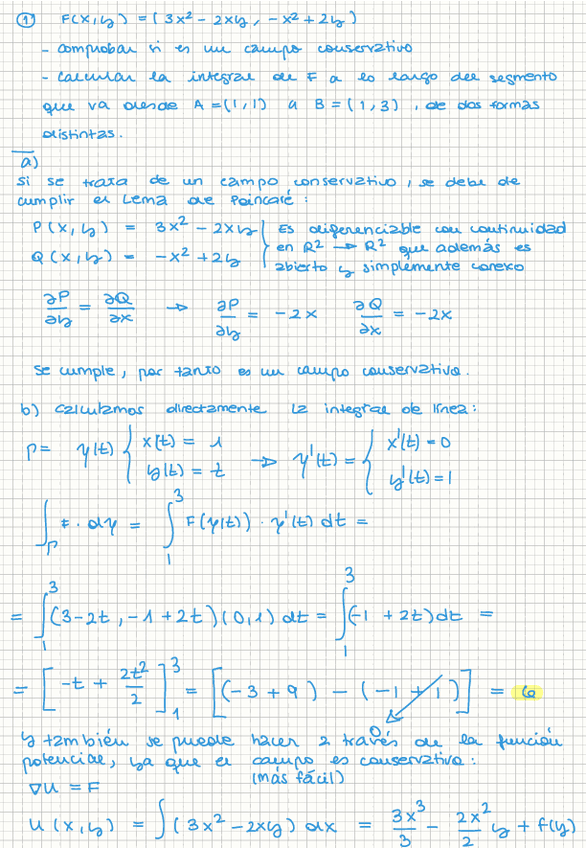 ① F(x,y) = (3x² - 2xy, -x² + 2y)
- comprobar si es un campo conservativo
- calcular la integral de F a lo largo del segmento
que va desde A = (1,1) a B = (1,3), de dos formas
distintas.
a)
si se trata de un campo conservativo, se debe de
cumplir el Lema de Poincaré:
P(x,y) = 3x² - 2xy } Es diferenciable con continuidad
Q(x,y) = -x² + 2y } en R² → R² que además es
abierto y simplemente conexo
∂P/∂y = ∂Q/∂x → ∂P/∂y = -2x ∂Q/∂x = -2x
se cumple, por tanto es un campo conservativo.
b) calculamos directamente la integral de línea:
Γ = γ(t) { x(t) = 1 → γ'(t) = { x'(t) = 0
y(t) = t y'(t) = 1
∫_Γ F · dγ = ∫₁³ F(γ(t)) · γ'(t) dt =
= ∫₁³ (3-2t, -1+2t)(0,1) dt = ∫₁³ (-1 + 2t) dt =
= [-t + 2t²/2]₁³ = [(-3 + 9) - (-1 + 1)] = 6
0
y también se puede hacer a través de la función
potencial, ya que el campo es conservativo:
∇U = F (más fácil)
U(x,y) = ∫(3x² - 2xy) dx = 3x³/3 - 2x²/2 y + f(y)